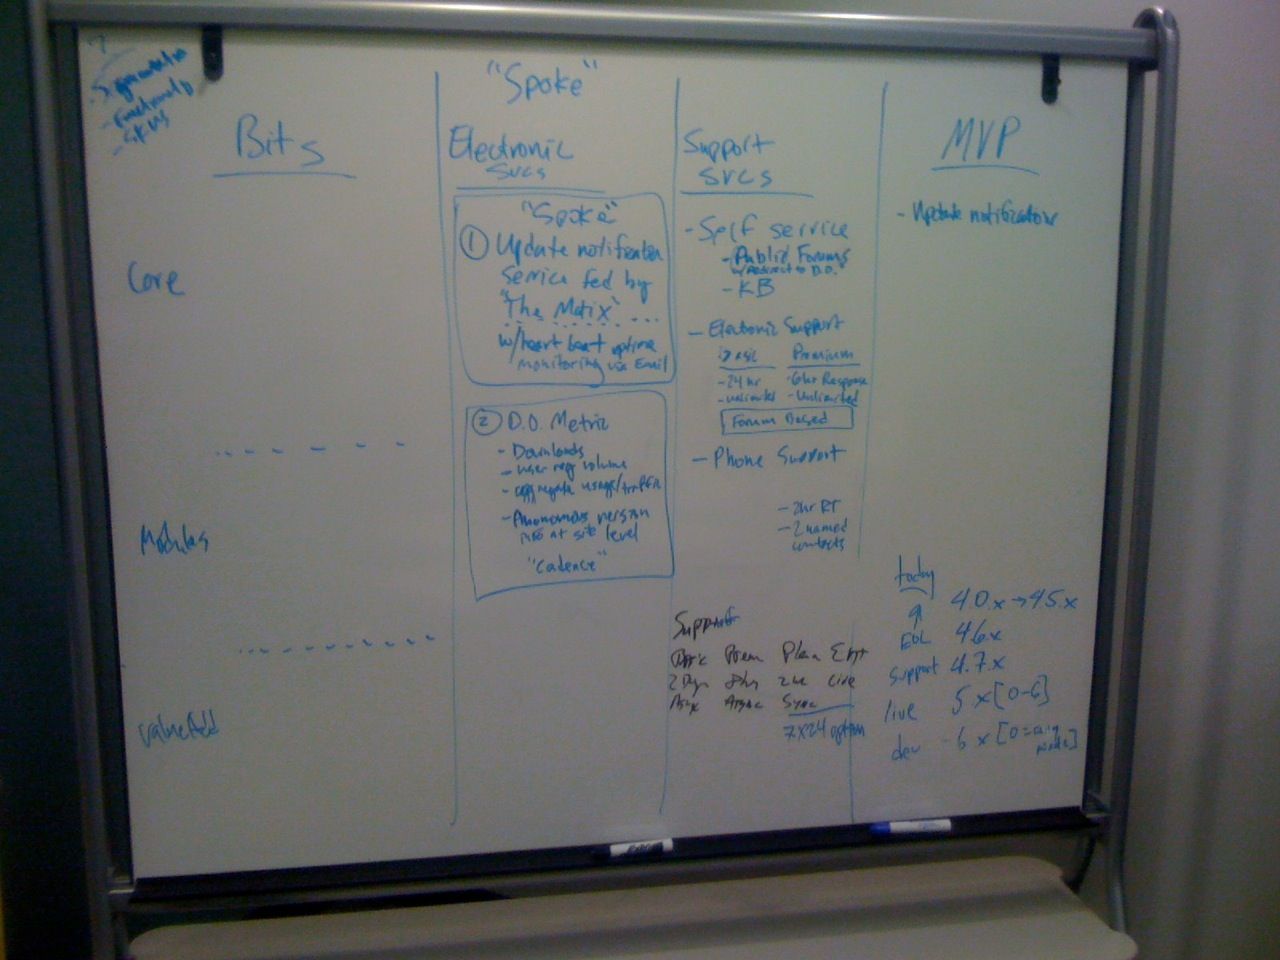 ?
- Segmentation
- Functionality
- SKUS
Bits
Core
Modules
Value Add
"Spoke"
Electronic
SVCS
"Spoke"
① Update notification
Service fed by
"The Matix"
w/heart beat uptime
monitoring via Email
② D.O. Metric
- Downloads
- user reg volume
- aggregate usage/traffic
- Anonomous version
info at site level
"Cadence"
Support
SVCS
- Self service
- Public Forums
w/redirect to D.O.
- KB
- Electronic Support
Basic Premium
- 24 hr · 6 hr Response
- unlimited - Unlimited
Forum Based
- Phone Support
- 2hr RT
- 2 named
contacts
Support
2 Days 2hr Live
Async Sync
7x24 option
MVP
- Update notifications
today
4.0.x → 4.5.x
EOL 4.6x
Support 4.7.x
live 5 x [0-6]
dev - 6 x